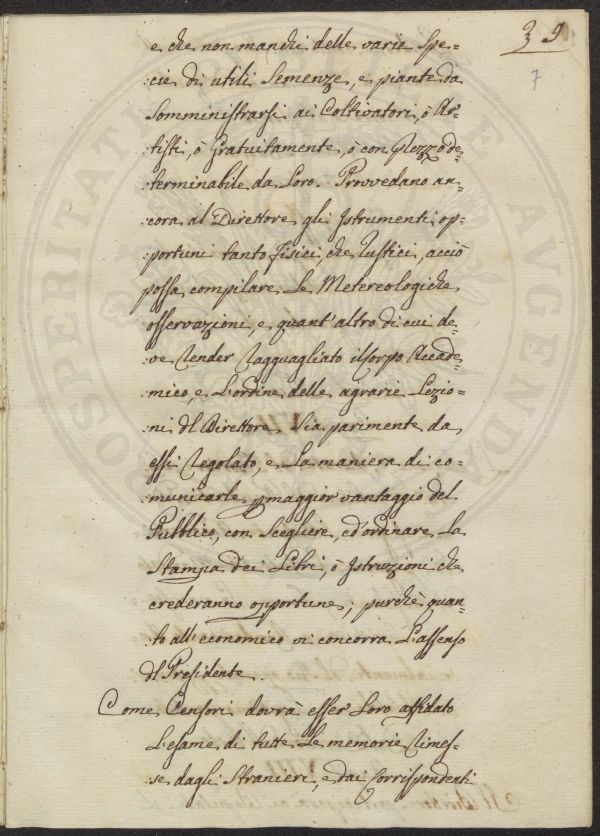 39
7
e che non manchi delle varie Spe=
:cie di utili Semenze, e piante da
Somministrarsi ai Coltivatori, ò Ar=
:tisti, ò Gratuitamente, ò con prezzo de=
:terminabile da Loro. Provvedano an=
:cora al Direttore gli Istrumenti op=
:portuni tanto fisici, che rustici, acciò
possa compilare le Metereologiche
osservazioni, e quant'altro di cui de=
:ve render ragguagliato il Corpo Accade=
:mico, e L'ordine delle agrarie Lezio=
:ni dl Direttore Sia parimente da
essi regolato, e La maniera di co=
:municarle p maggior vantaggio del
Pubblico, con Scegliere, ed ordinare La
Stampa dei Libri, ò Istruzioni che
crederanno opportune; purchè quan=
to all'economico vi concorra L'assenso
dl Presidente.
Come Censori dovrà esser Loro affidato
L'esame di tutte Le memorie rimes=
:se dagli Stranieri, e dai Corrispondenti
PROSPERITATI PUBLICAE AUGENDAE